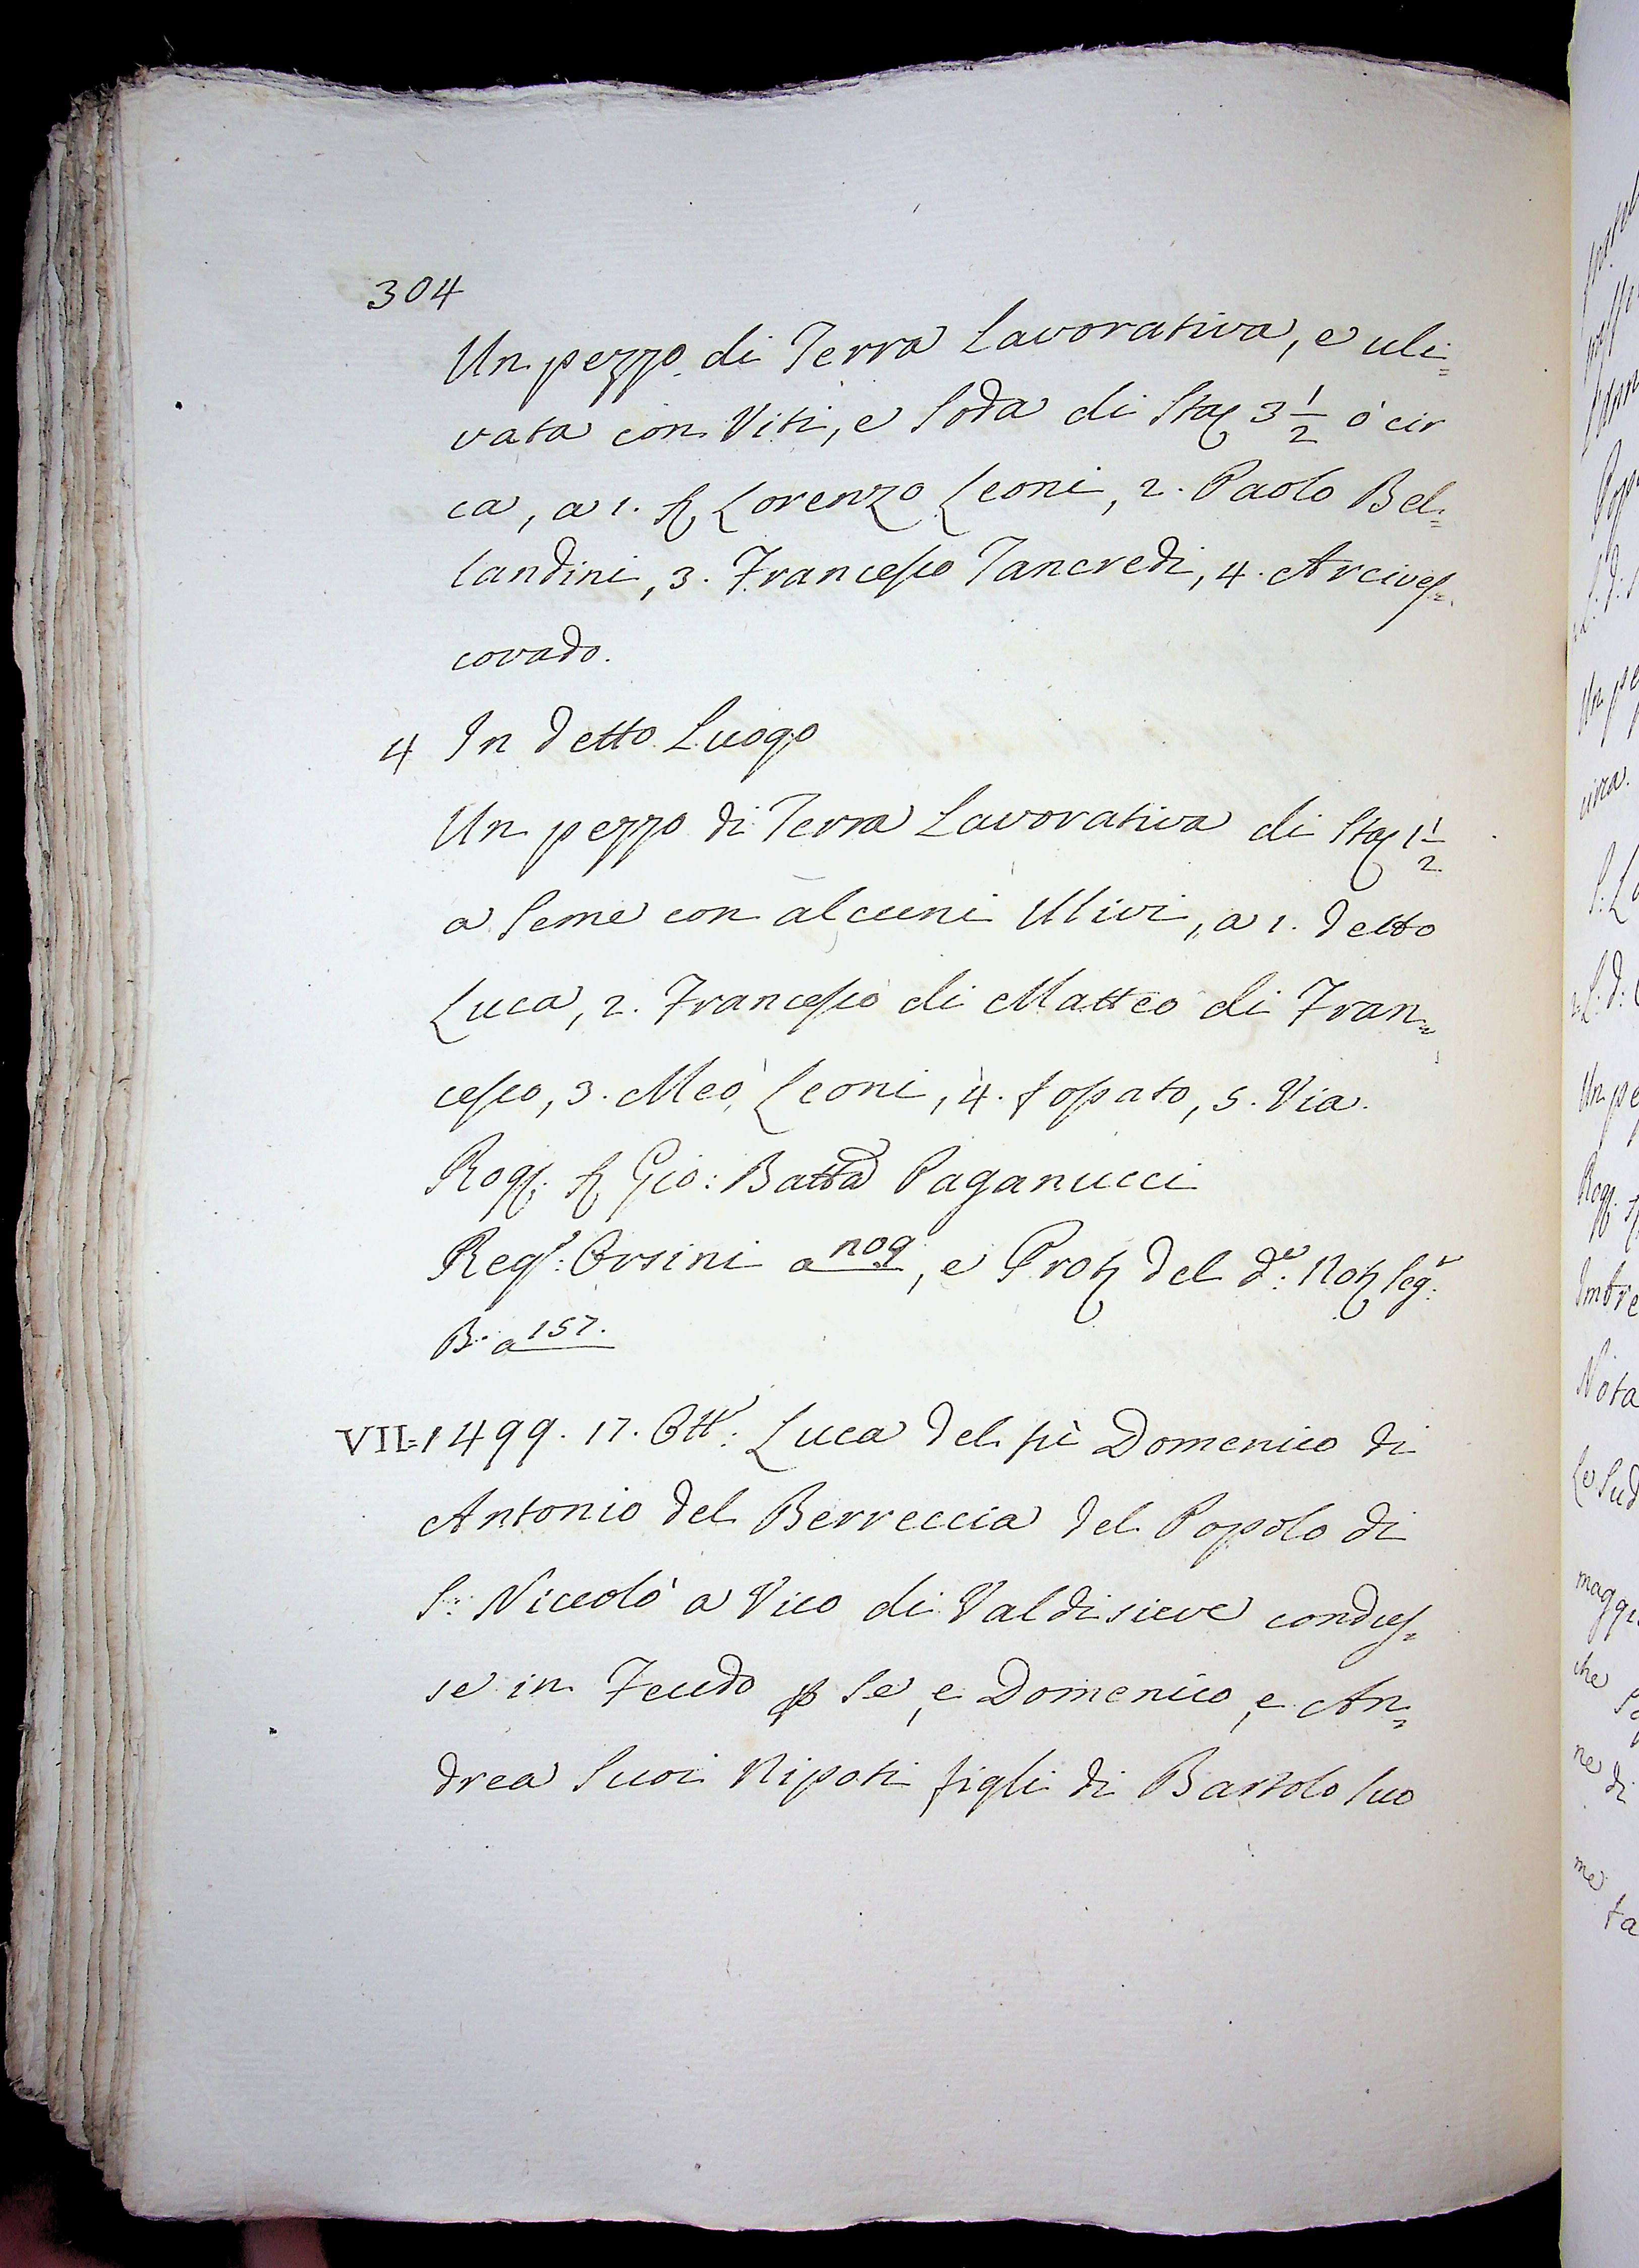 304
Un pezzo di Terra Lavorativa, e uli=
vata con Viti, e Soda di Sta: 3 1/2 ò cir
ca, a 1. S: Lorenzo Leoni, 2. Paolo Bel=
landini, 3. Francesco Tancredi, 4. Arcives=
covado.
4 In detto Luogo
Un pezzo di Terra Lavorativa di Sta: 1 1/2
a Seme con alcuni Ulivi, a 1. detto
Luca, 2. Francesco di Matteo di Fran=
cesco, 3. Meo Leoni, 4. fossato, 5. Via.
Rog: S: Gio: Batta Paganucci
Reg:o Orsini a 109, e Prot: del d:o Not: seg:o
B: a 157.
VII=1499. 17. Ott:e Luca del fù Domenico di
Antonio del Berreccia del Popolo di
S: Niccolò a Vico di Valdisieve condus=
se in Feudo p Se, e Domenico, e An=
drea Suoi Nipoti figli di Bartolo suo